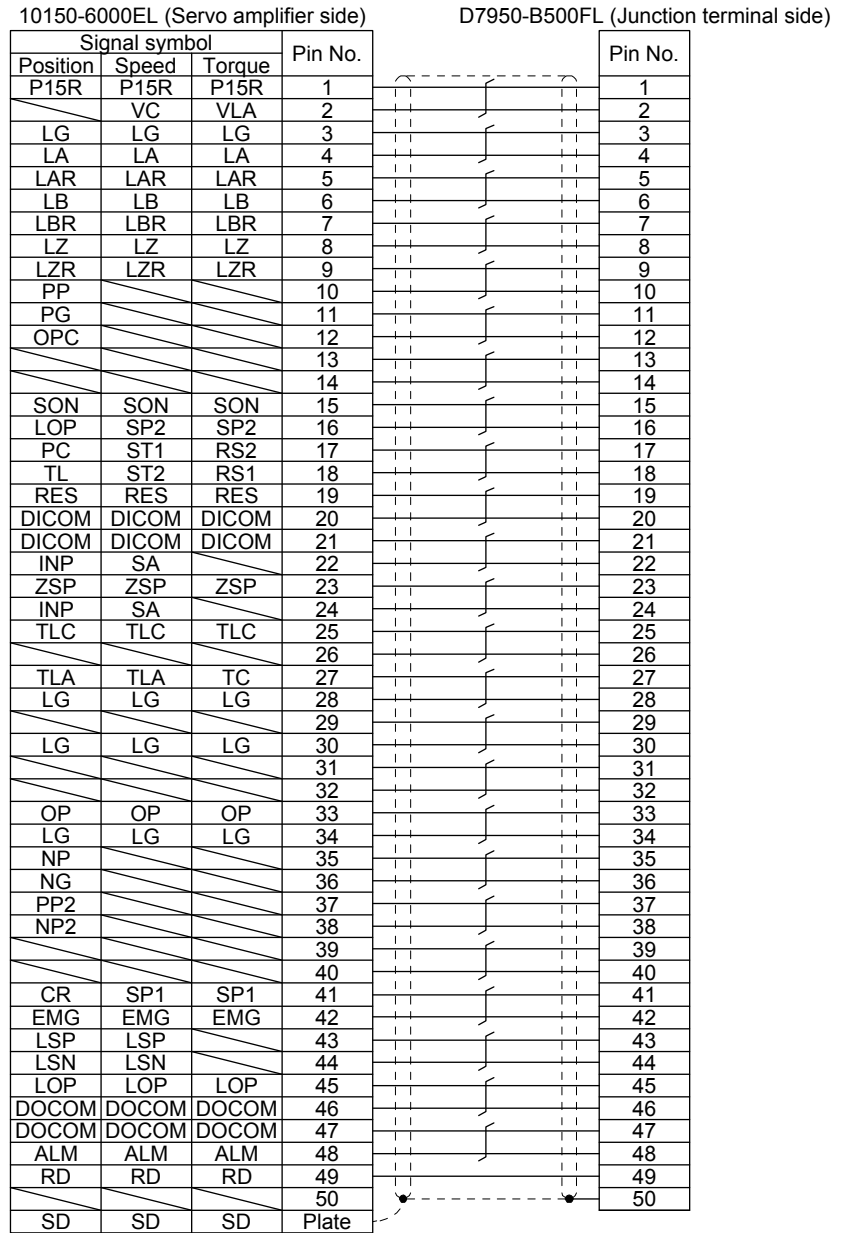 10150-6000EL (Servo amplifier side) D7950-B500FL (Junction terminal side)
Signal symbol Pin No. Pin No.
Position Speed Torque
P15R P15R P15R 1 1
VC VLA 2 2
LG LG LG 3 3
LA LA LA 4 4
LAR LAR LAR 5 5
LB LB LB 6 6
LBR LBR LBR 7 7
LZ LZ LZ 8 8
LZR LZR LZR 9 9
PP 10 10
PG 11 11
OPC 12 12
13 13
14 14
SON SON SON 15 15
LOP SP2 SP2 16 16
PC ST1 RS2 17 17
TL ST2 RS1 18 18
RES RES RES 19 19
DICOM DICOM DICOM 20 20
DICOM DICOM DICOM 21 21
INP SA 22 22
ZSP ZSP ZSP 23 23
INP SA 24 24
TLC TLC TLC 25 25
26 26
TLA TLA TC 27 27
LG LG LG 28 28
29 29
LG LG LG 30 30
31 31
32 32
OP OP OP 33 33
LG LG LG 34 34
NP 35 35
NG 36 36
PP2 37 37
NP2 38 38
39 39
40 40
CR SP1 SP1 41 41
EMG EMG EMG 42 42
LSP LSP 43 43
LSN LSN 44 44
LOP LOP LOP 45 45
DOCOM DOCOM DOCOM 46 46
DOCOM DOCOM DOCOM 47 47
ALM ALM ALM 48 48
RD RD RD 49 49
50 50
SD SD SD Plate